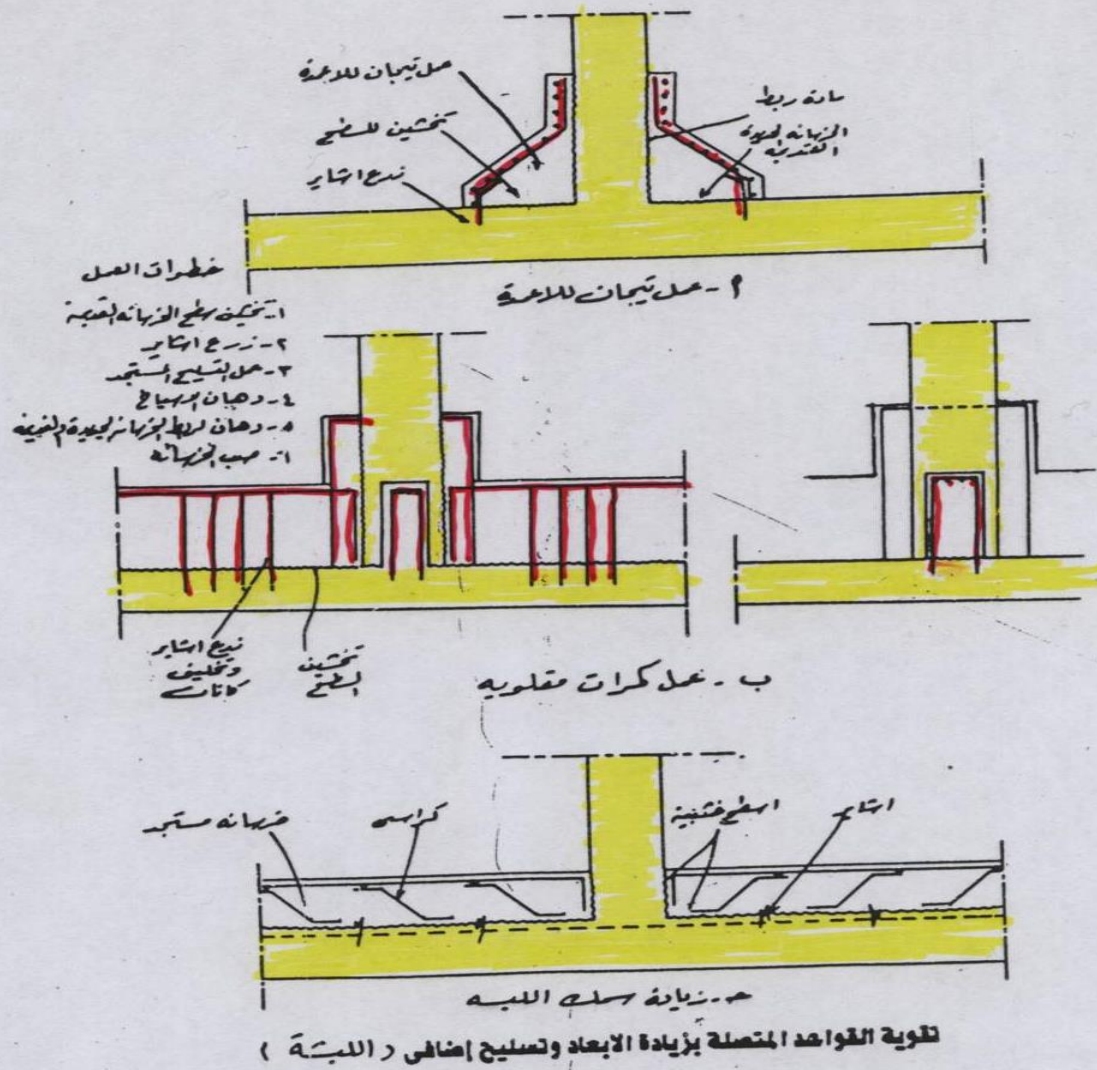 عمل تيجان للاعمدة
تخشين للسطح
زرع اشاير
مادة ربط
الخرسانه الجديدة
القديمة
أ - عمل تيجان للاعمدة
خطوات العمل
١- تخشين سطح الخرسانه القديمة
٢- زرع اشاير
٣- عمل التسليح المستجد
٤- دهان الاسياخ
٥- دهان لربط الخرسانه الجديدة والقديمة
٦- صب الخرسانه
زرع اشاير
وتخليف
كانات
تخشين
السطح
ب - عمل كمرات مقلوبه
خرسانه مستجد
كراسى
اسطح خشنه
اشاير
حـ - زيادة سمك اللبشه
تقوية القواعد المتصلة بزيادة الابعاد وتسليح إضافى ( اللبشة )